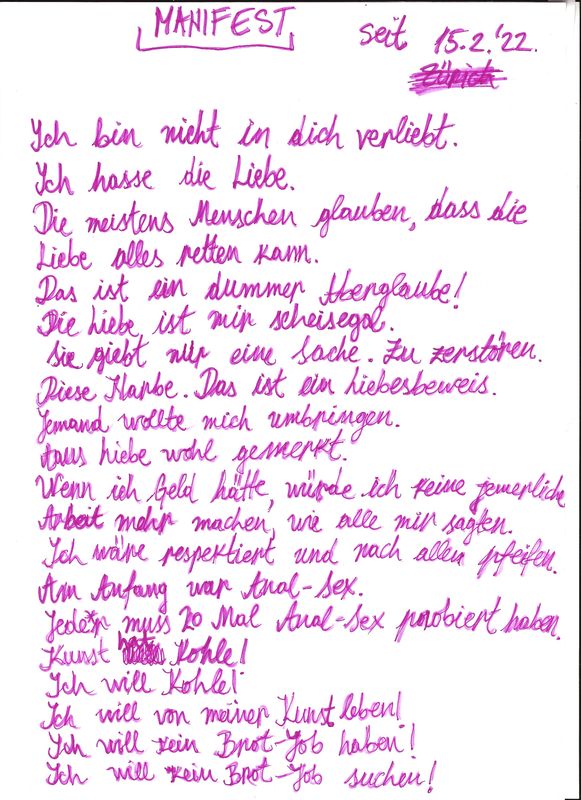 MANIFEST seit 15.2.'22.
Zürich
Ich bin nicht in dich verliebt.
Ich hasse die Liebe.
Die meistens Menschen glauben, dass die
Liebe alles retten kann.
Das ist ein dummer Aberglaube!
Die Liebe ist mir scheisegal.
Sie giebt nur eine Sache. Zu zerstören.
Diese Narbe. Das ist ein Liebesbeweis.
Jemand wollte mich umbringen.
Aus Liebe wohl gemerkt.
Wenn ich Geld hätte, würde ich keine jemerliche
Arbeit mehr machen, wie alle mir sagten.
Ich wäre respektiert und nach allen pfeifen.
Am Anfang war Anal-Sex.
Jede*r muss 20 Mal Anal-Sex probiert haben.
Kunst Kohle!
Ich will Kohle!
Ich will von meiner Kunst leben!
Ich will kein Brot-Job haben!
Ich will kein Brot-Job suchen!